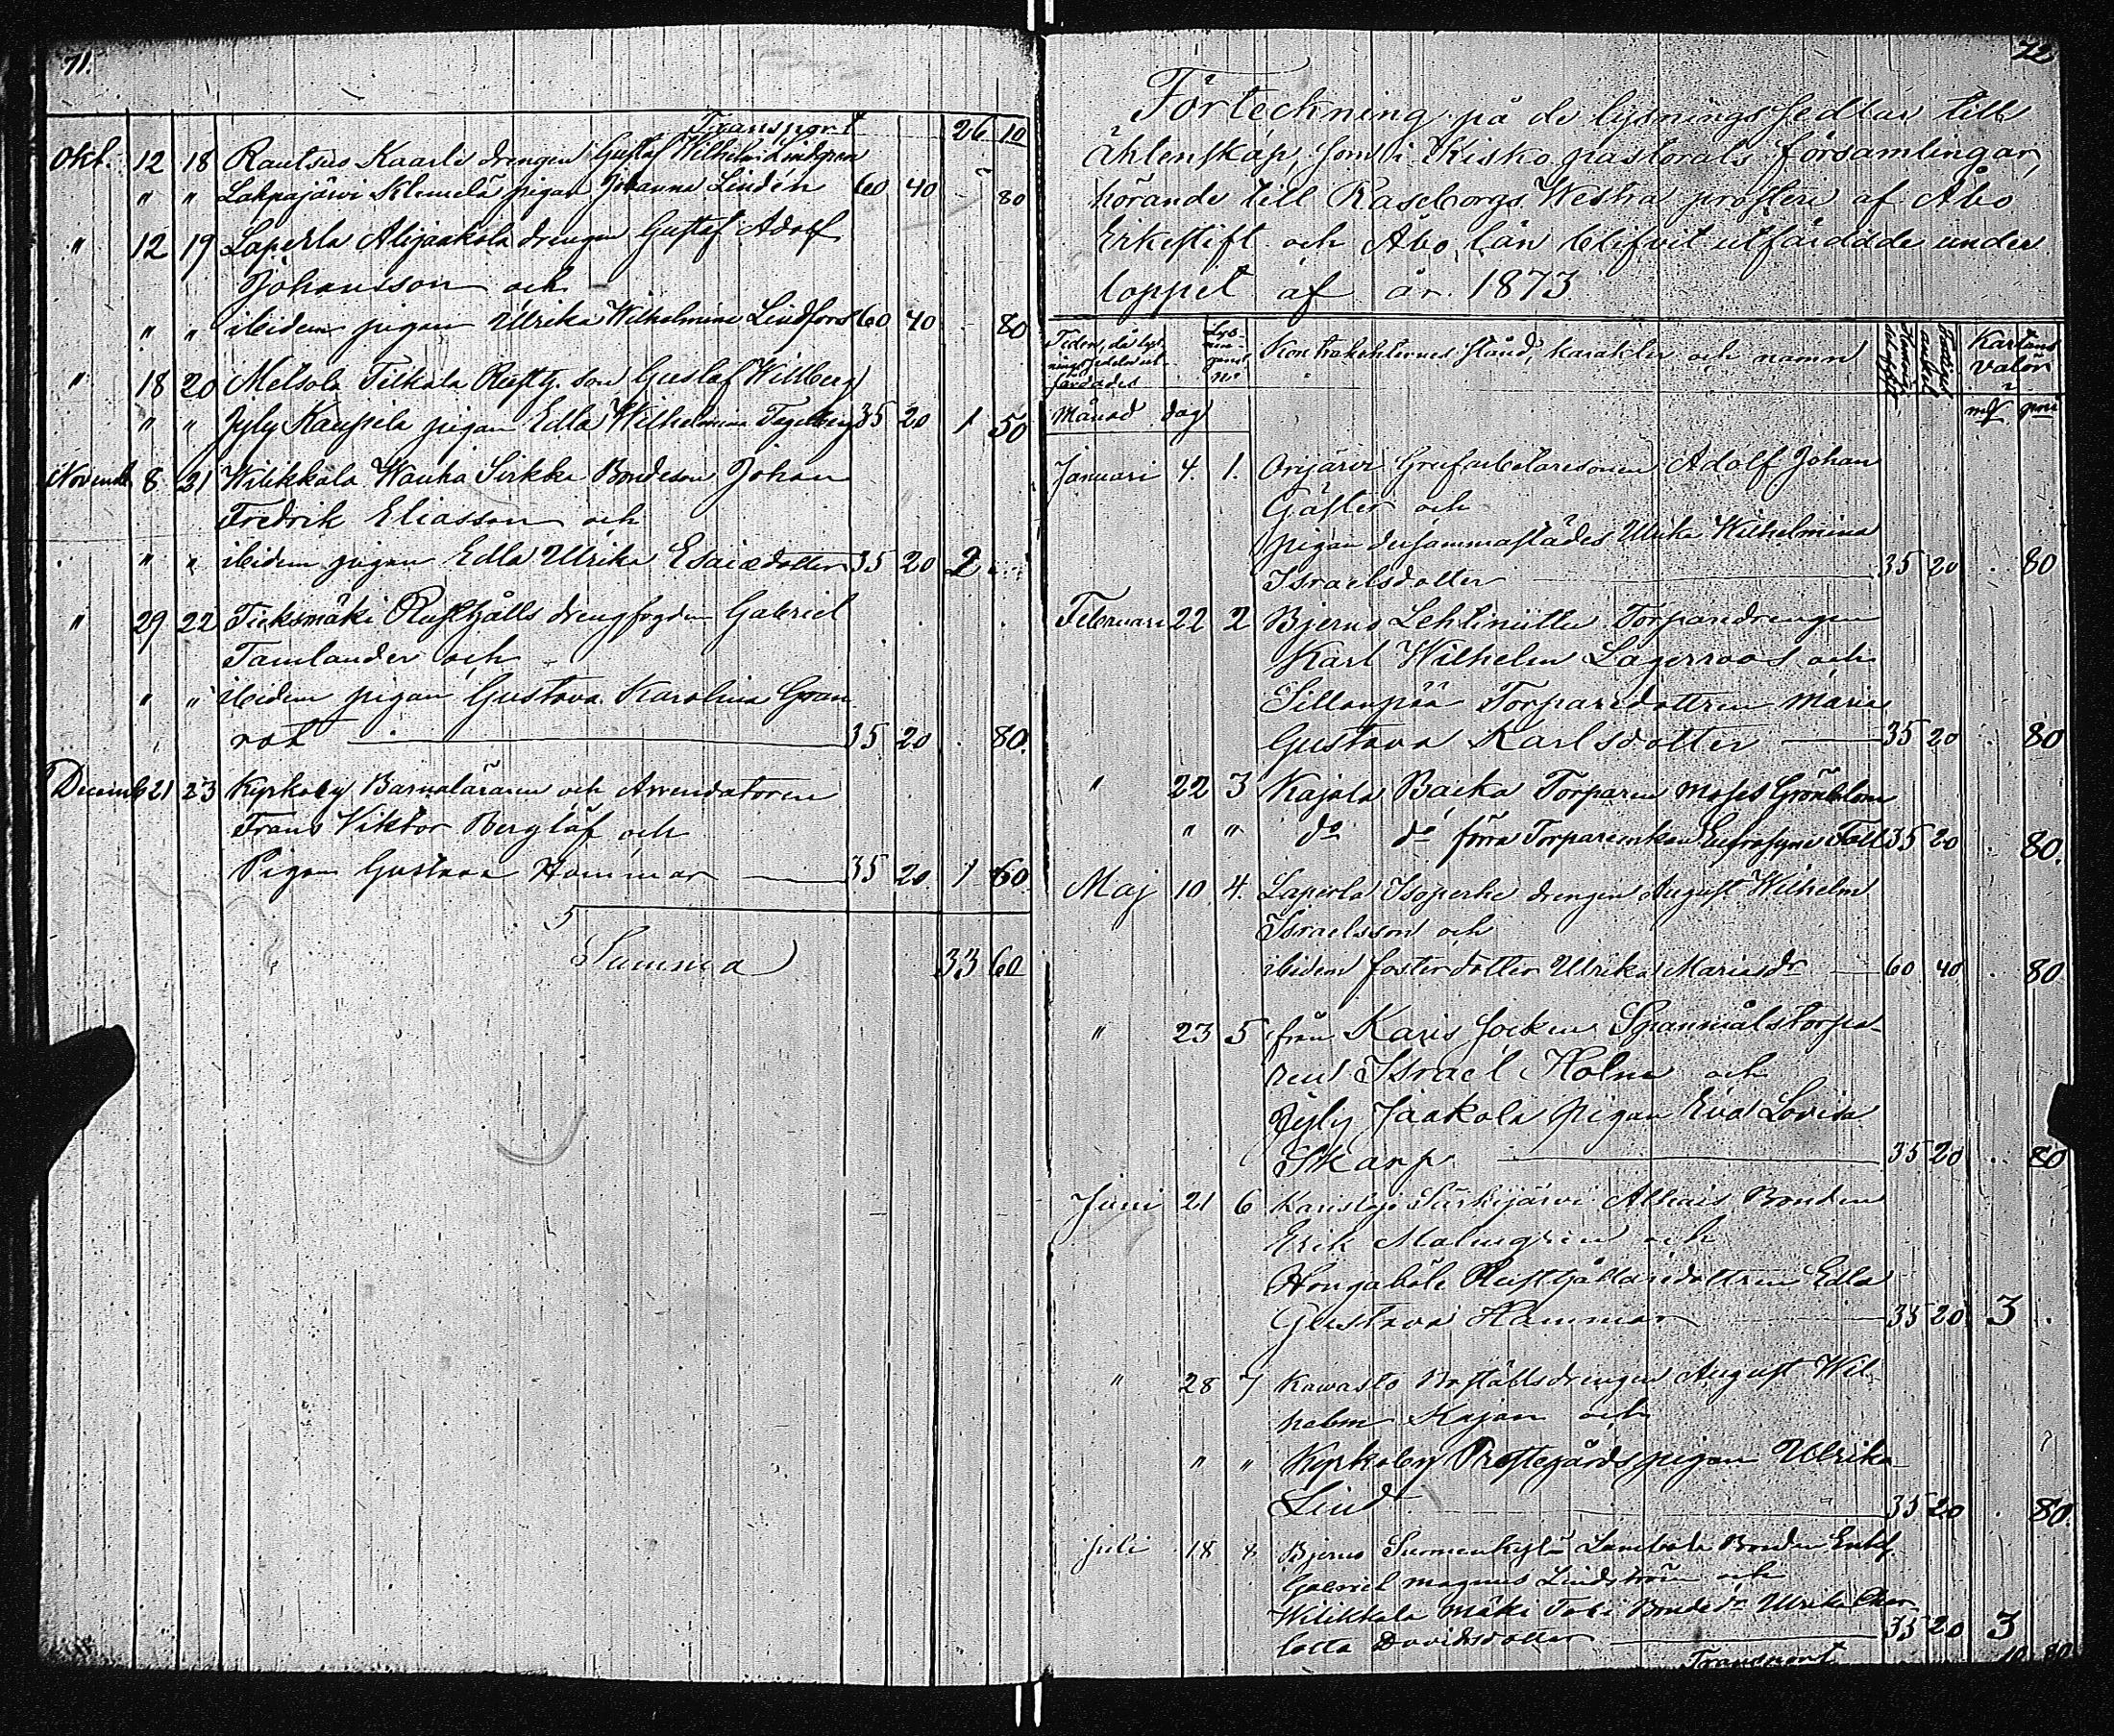 71.
Transport 26 10
Okt. 12 18 Rautsuo Kaarle drengen Gustaf Wilhelm Lindgren
" " Lahnajärvi Klemelä pigan Johanna Lindén 60 40 - 80
" 12 19 Laperla Alijaakola drengen Gustaf Adolf
Johansson och
" " ibidem pigan Ulrika Wilhelmina Lindfors 60 40 . 80
" 18 20 Metsola Tilkala Rusth. son Gustaf Willberg
" " Jyly Kaupila pigan Edla Wilhelmina Tegelberg 35 20 1 50
Novemb 8 21 Wilikkala Wanha Sirkka Bondeson Johan
Fredrik Eliasson och
" " ibidem pigan Edla Ulrika Esaiædotter 35 20 2 ..
" 29 22 Tieksmäki Rusthålls drengfogden Gabriel
Tamlander och
" " ibidem pigan Gustava Karolina Gran
rot 35 20 . 80.
Decemb 21 23 Kyrkoby Barnaläraren och Arrendatoren
Frans Viktor Berglöf och
Pigan Gustava Hammar 35 20 1 60
Summa 33 60
72
Förteckning på de lysningssedlar till
äktenskap, som i Kisko pastorats församlingar,
hörande till Raseborgs Westra prosteri af Åbo
Erkestift och Åbo län blifvit utfärdade under
loppet af år 1873
Tiden, då lys-
ningssedeln ut-
färdades
Kontrahenternes stånd, karakter och namn
Kartans
Valör
Månad dag
mk pni
Januari 4. 1. Orijärvi Grufarbetaresonen Adolf Johan
Gäster och
pigan dersammastädes Ulrika Wilhelmina
Israelsdotter 35 20 . 80
Februari 22 2 Bjerno Lehtiniittu Torparedrengen
Karl Wilhelm Lagerroos och
Sillanpää Torparedottren Maria
Gustava Karlsdotter 35 20 . 80
" 22 3 Kajala Backa Torparen Moses Grönblom
" " do do förra Torpareenkan Eufrosyne Fall 35 20 . 80.
Maj 10 4. Laperla Isoperhe drengen August Wilhelm
Israelsson och
ibidem fosterdotter Ulrika Mariasdr 60 40 . 80
" 23 5 från Karis socken Spannmålstorpa-
ren Israel Holm och
Jyly Jaakola pigan Eva Lovisa
Skarp 35 20 . 80
Juni 21 6 Karislojo Särkijärvi Bonden
Erik Malmgren och
Hongaböle Rusthållaredottren Edla
Gustava Hammar 35 20 3 .
" 28 7 Kawasto Boställsdrengen August Wil-
helm Kajan och
" " Kyrkoby Prestegårdspigan Ulrika
Lind 35 20 . 80.
Juli 18 8. Bjerno Suomenkylä Bonden Enkl.
Gabriel Magnus Lindström och
Wilikkala Mäki Tobi Bondedr Ulrika Char-
lotta Davidsdotter 35 20 3
Transport 10 80